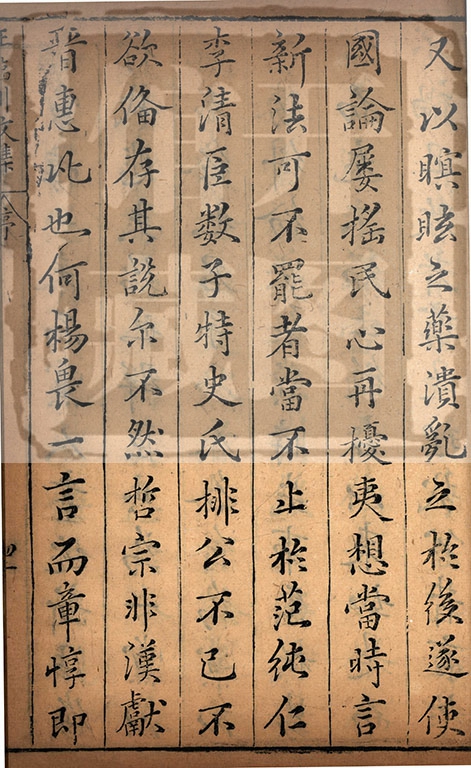 又以瞑眩之藥潰亂之於後遂使
國論屡搖民心再擾夷想當時言
新法可不罷者當不止於范純仁
李清臣数子特史氏排公不已不
欲俻存其說尔不然哲宗非漢獻
晋惠比也何楊畏一言而章惇即